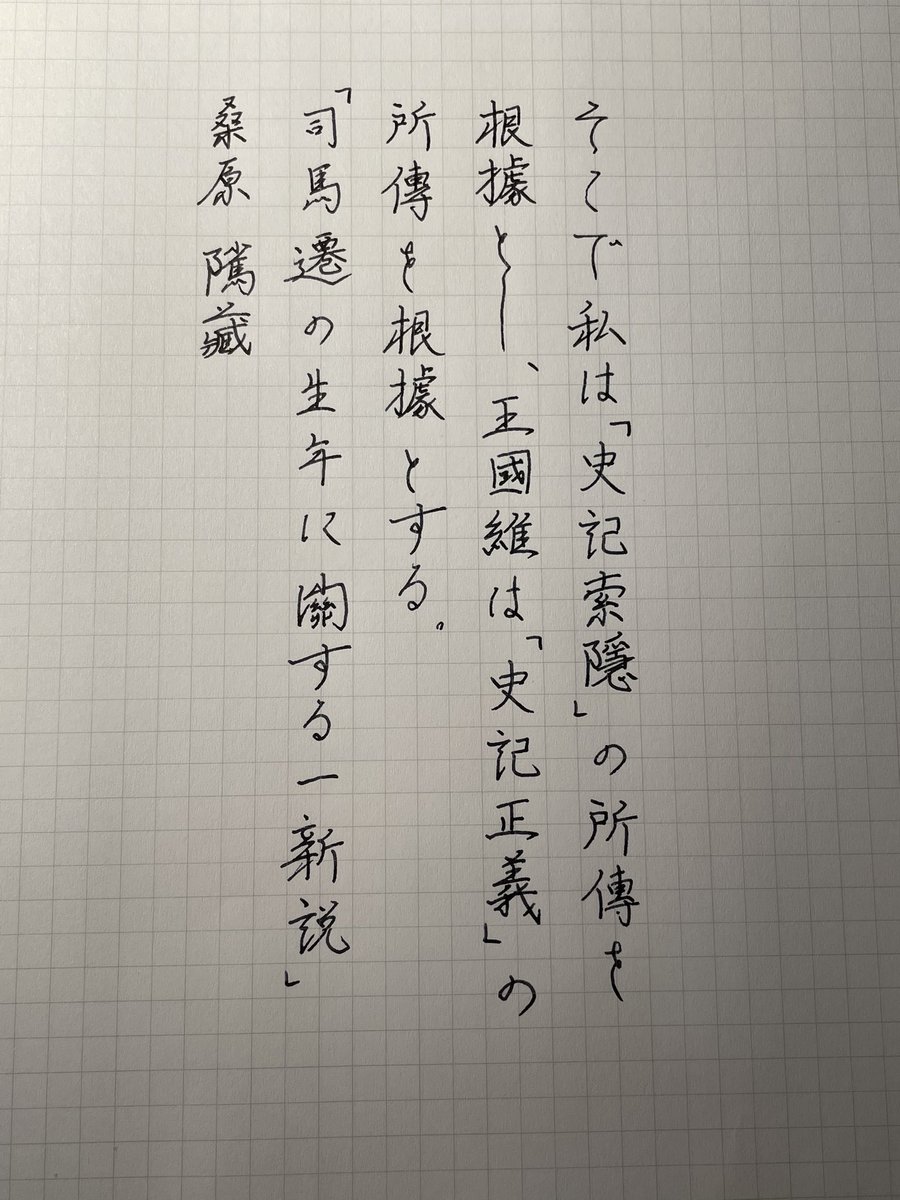 そこで私は「史記索隱」の所傳を
根據とし、王國維は「史記正義」の
所傳を根據とする。
「司馬遷の生年に關する一新説」
桑原 隲藏